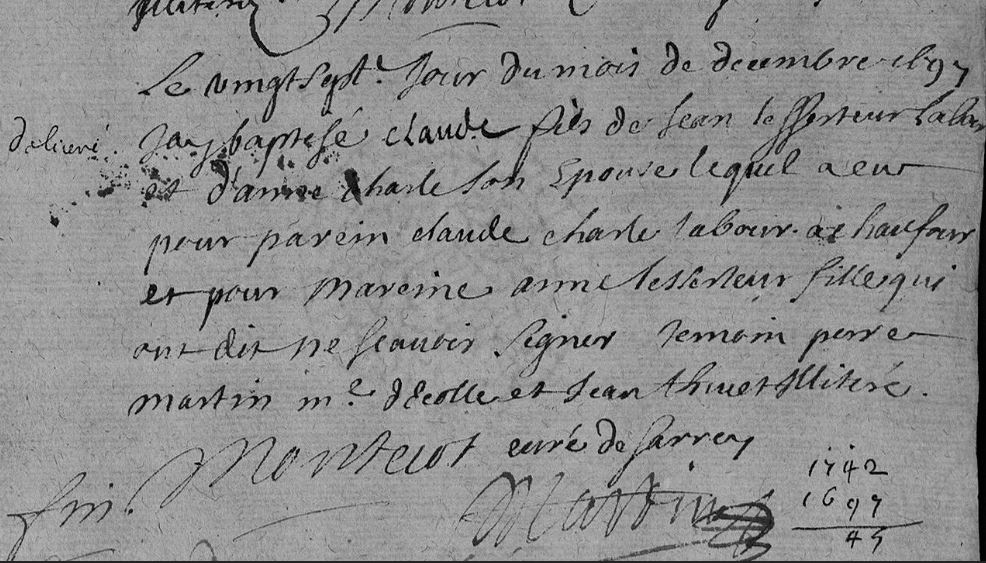 Le vingt sept.e Jour du mois de decembre 1697
delivré. Jay baptisé claude fils de Jean lesserteur labour
et d'anne charle son Epouse lequel a eu
pour parein claude charle labour. a
et pour mareine anne lesserteur fille qui
ont dit ne scavoir signer temoin pierre
martin m.e d'Ecolle et Jean thivet illiteré.
Montecot curé de Sarrey
fin. Martin
1742
1697
45